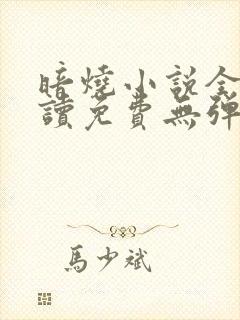 暗燒小説全
讀免費無彈
馬少斌